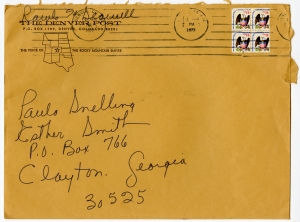 THE DENVER POST
P. O. BOX 1709, DENVER, COLORADO 80201
THE VOICE OF THE ROCKY MOUNTAIN EMPIRE
PM
1977
Paula Snelling
Esther Smith
P.O. Box 766
Clayton, Georgia
30525